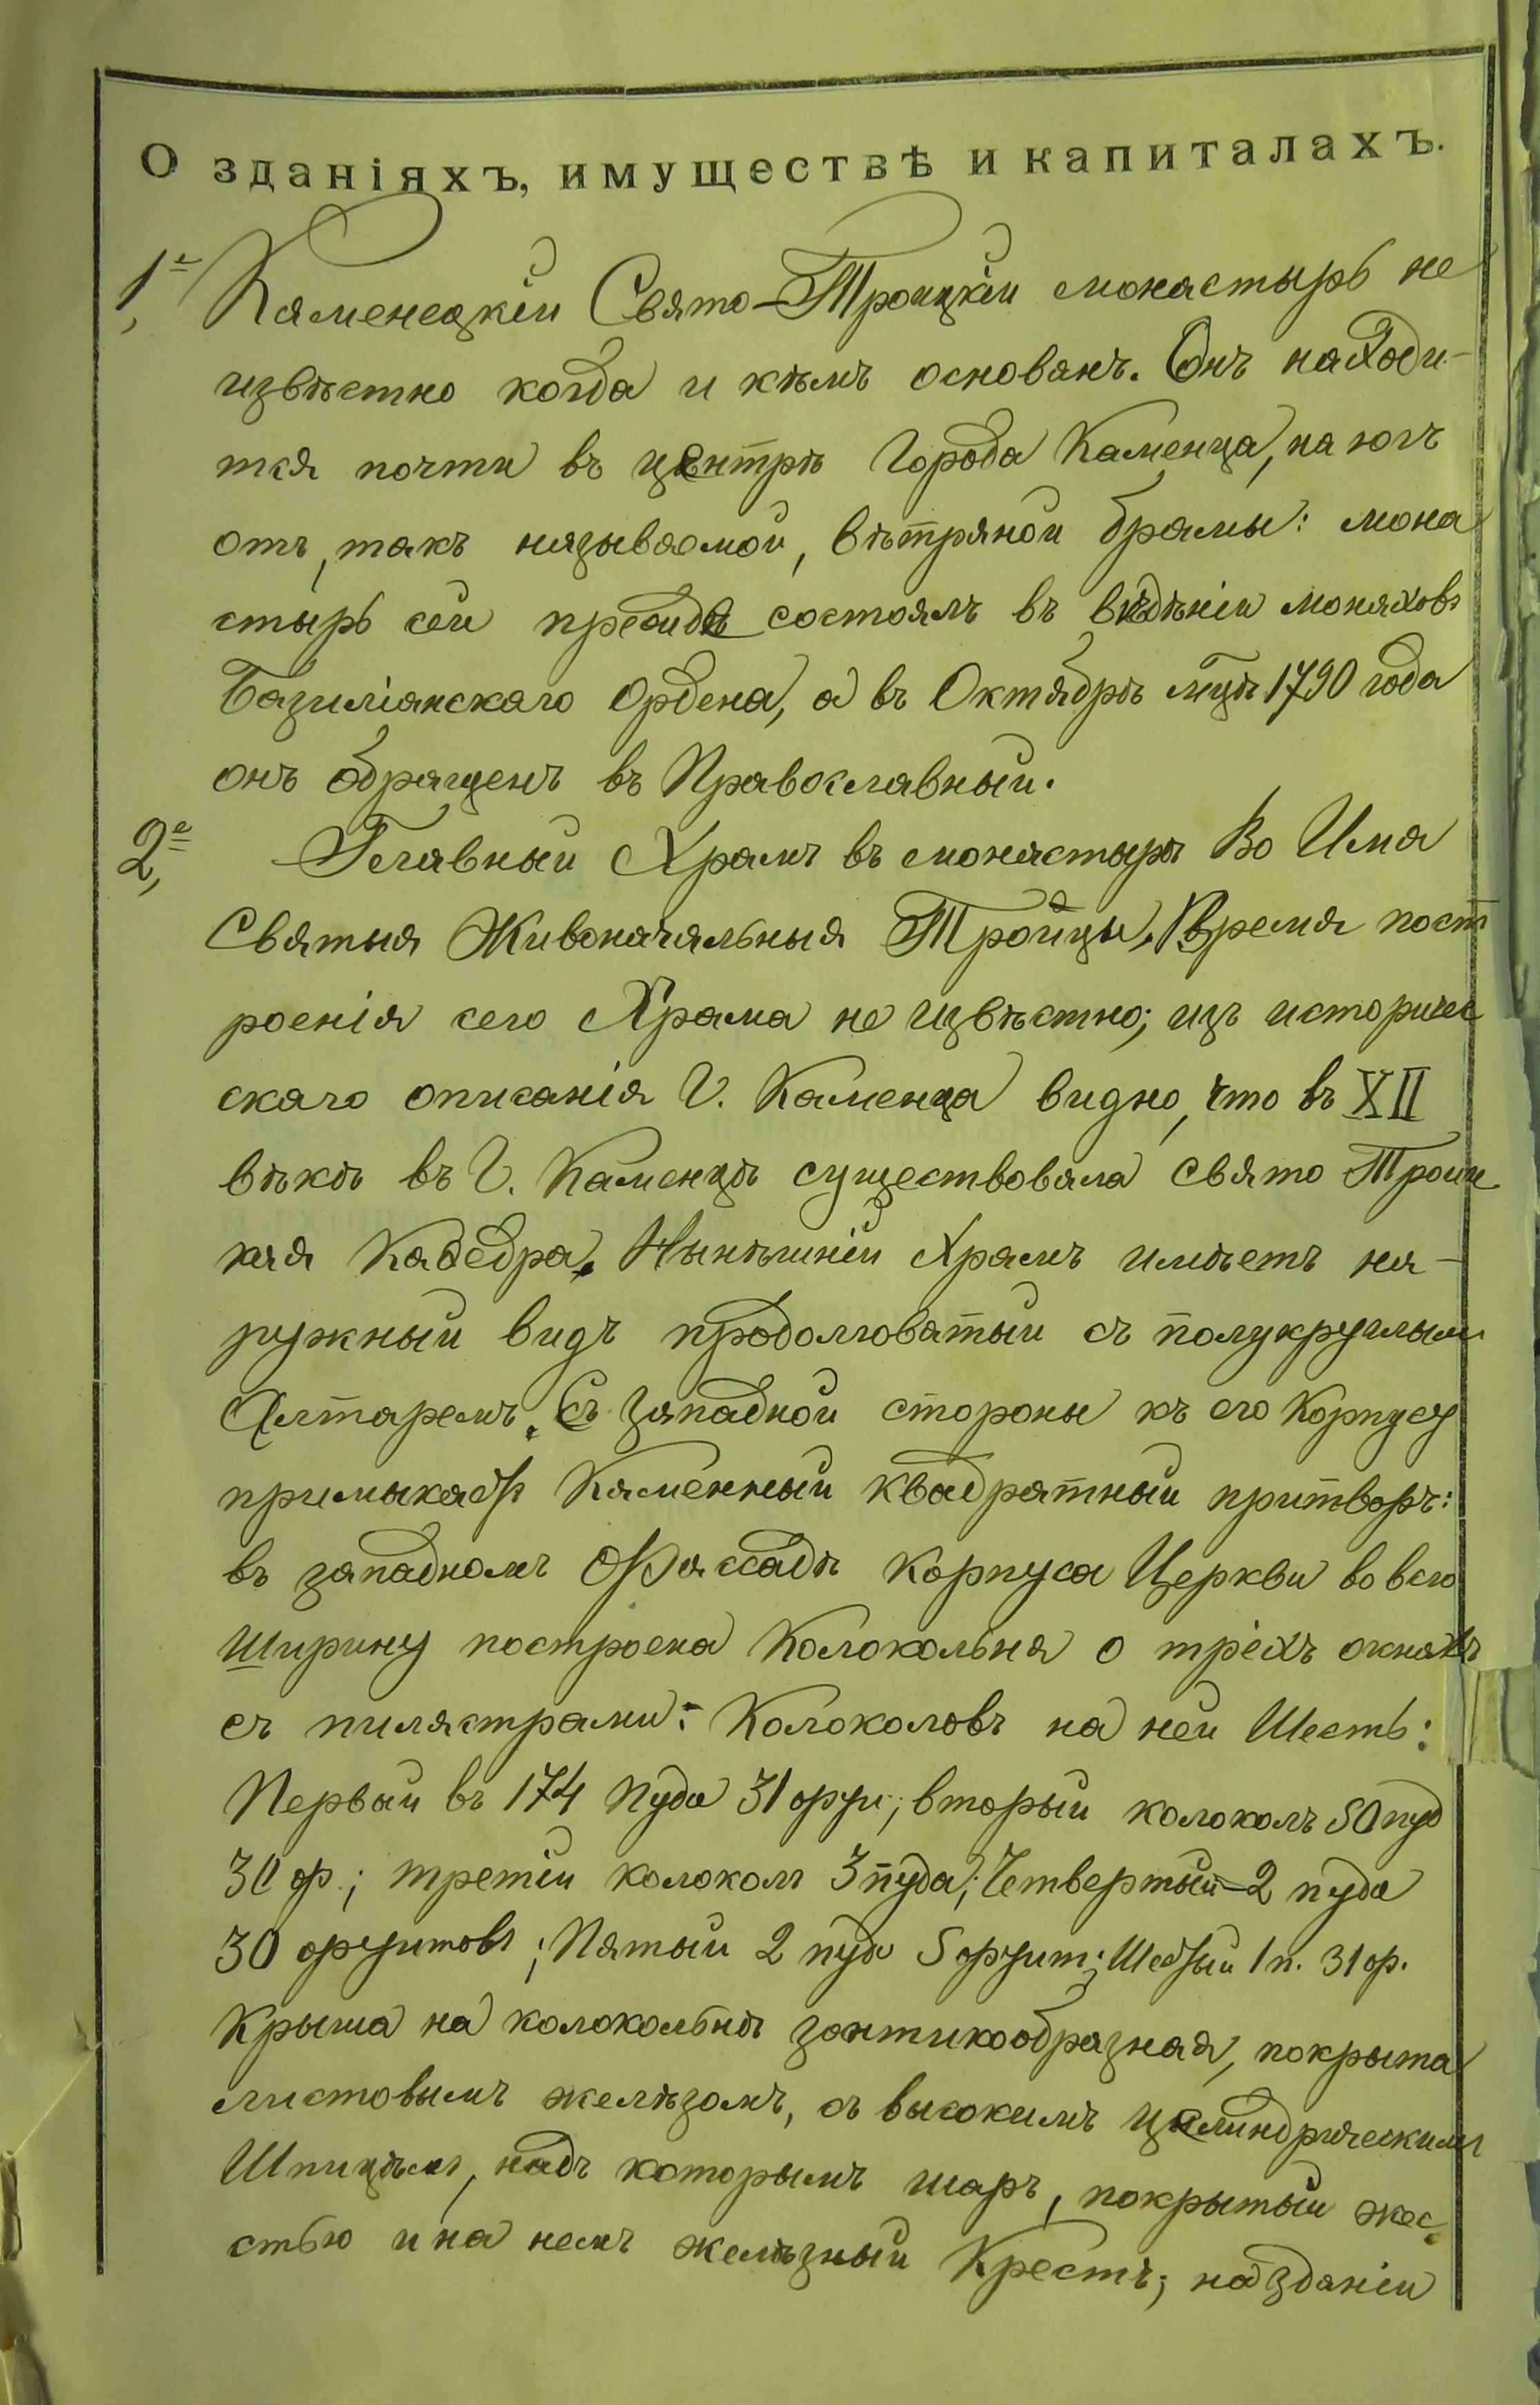 О зданіяхъ, имуществѣ и капиталахъ.
1,е Каменецкій Свято-Троицкій монастырь не
извѣстно когда и кѣмъ основанъ. Онъ находи-
тся почти въ центрѣ Города Каменца, на югъ
отъ, такъ называемой, вѣтряной брамы: мона
стырь сей прежде состоялъ въ вѣдѣніи монаховъ
Базиліанскаго Ордена, а въ Октябрѣ мцѣ 1790 года
онъ обращенъ въ Православный.
2,е Главный Храмъ въ монастырѣ Во Имя
Святыя Живоначальныя Тройцы. Время пост
роенія сего Храма не извѣстно; изъ историчес
скаго описанія Г. Каменца видно, что въ XII
вѣкѣ въ Г. Каменцѣ существовала Свято Троиц
кая Каѳедра. Нынѣшній Храмъ имѣетъ на-
ружный видъ продолговатый съ полукруглым
Алтаремъ. Съ западной стороны къ его Корпусу
примыкаетъ Каменный квадратный притворъ:
въ западномъ Фассадѣ Корпуса Церкви во всю
Ширину построена Колокольня о трехъ окнахъ
съ пилястрами: Колоколовъ на ней Шесть:
Первый въ 174 пуда 31 фун; вторый колоколъ 50 пуд
30 ф.; третій колоколъ 3 пуда; Четвертый-2 пуда
30 фунтовъ; Пятый 2 пуда 5 фунт; Шестый 1 п. 31 ф.
Крыша на колокольнѣ зонтикообразная, покрыта
листовымъ желѣзомъ, съ высокимъ цилиндрическимъ
Шпицемъ, надъ которымъ шаръ, покрытый жес-
стью и на немъ желѣзный Крестъ; на зданіи